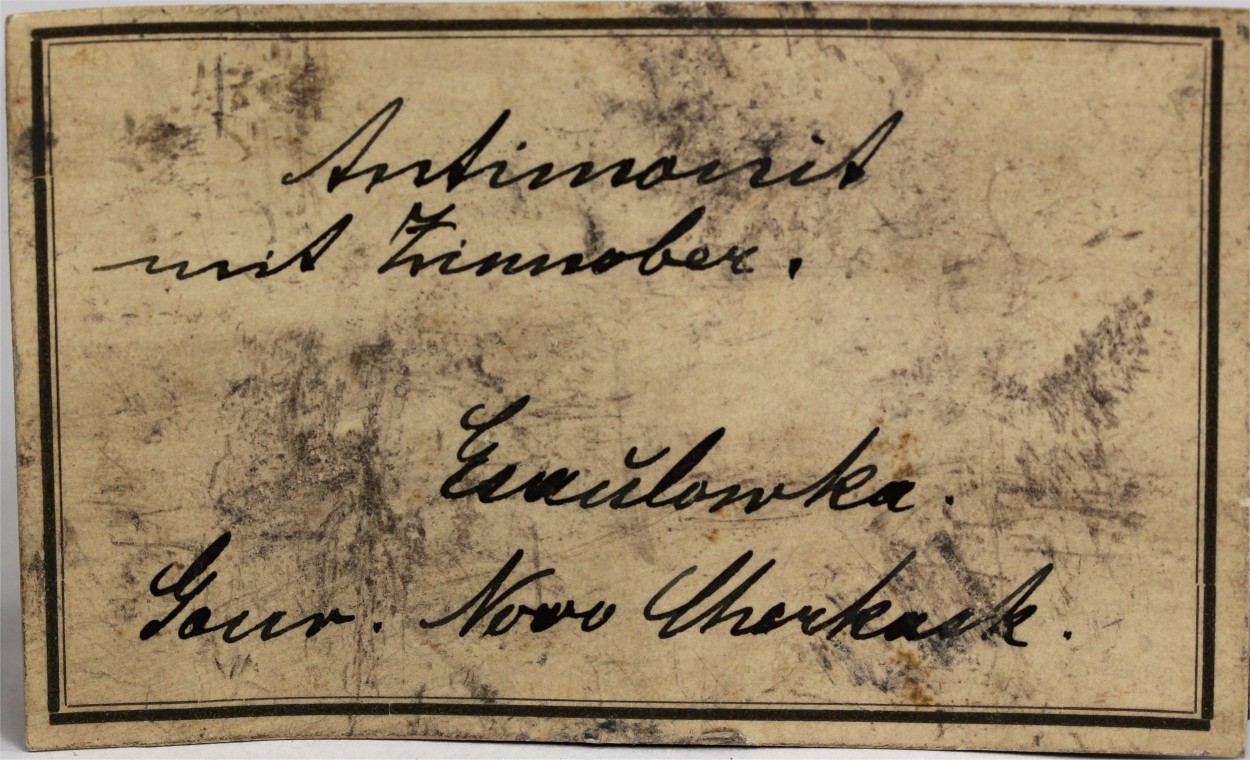 Antimonit
mit Zinnober.
Esaŭlowka.
Gouv. Novo Cherkask.